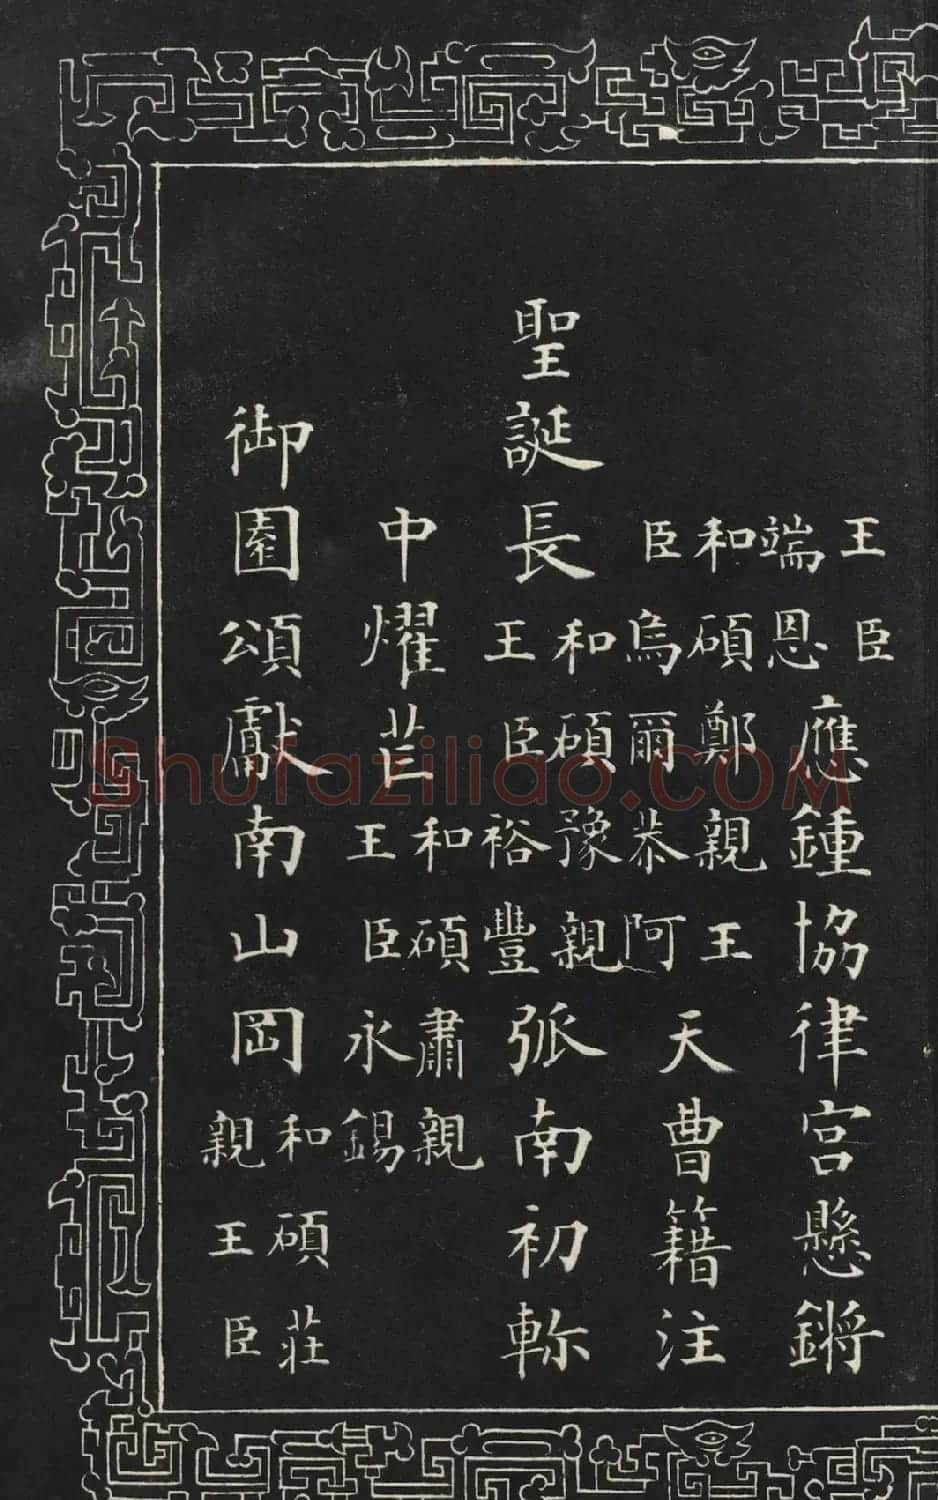 王臣端恩應鍾協律宮懸鏘
和碩鄭親王臣烏爾恭阿天曹籍注
聖誕長和碩豫親王臣裕豐弧南初軫
中燿芒和碩肅親王臣永錫
御園頌獻南山岡和碩莊親王臣
Shufaziliao.COM